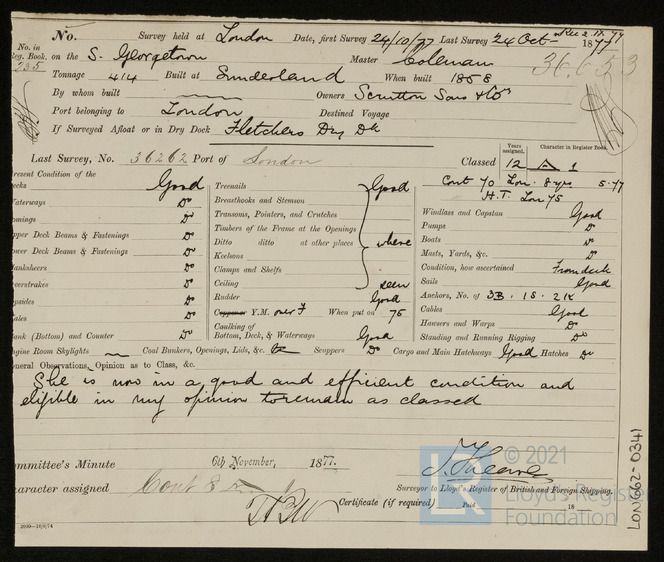 No. Survey held at London Date, first Survey 24/10/77 Last Survey 24 Oct 1877
No. in
Reg. Book. on the S. Georgetown Master Coleman 36,653
235
Tonnage 414 Built at Sunderland When built 1858
By whom built Owners Scrutton Sons & Co
Port belonging to London Destined Voyage
If Surveyed Afloat or in Dry Dock Fletchers Dry Dk
Last Survey, No. 36262 Port of London Classed 12 A 1
Years assigned. Character in Register Book.
Cont 70 Lon. 8 yrs 5.77
H.T. Lon 75
resent Condition of the
ecks Good
aterways Do
omings Do
pper Deck Beams & Fastenings Do
ower Deck Beams & Fastenings Do
lanksheers Do
eerstrakes Do
opsides Do
ales Do
lank (Bottom) and Counter Do
Treenails Good
Breasthooks and Stemson
Transoms, Pointers, and Crutches
Timbers of the Frame at the Openings
Ditto ditto at other places where
Keelsons
Clamps and Shelfs
Ceiling seen
Rudder Good
Copper Y.M. over F When put on 75
Caulking of
Bottom, Deck, & Waterways Good
Windlass and Capstan Good
Pumps Do
Boats Do
Masts, Yards, &c. Do
Condition, how ascertained From deck
Sails Good
Anchors, No. of 3B. 1S. 2K
Cables Good
Hawsers and Warps Do
Standing and Running Rigging Do
ngine Room Skylights Coal Bunkers, Openings, Lids, &c. Scuppers Do Cargo and Main Hatchways Good Hatches Do
eneral Observations, Opinion as to Class, &c.
She is now in a good and efficient condition and
eligible in my opinion to remain as classed
ommittee's Minute 6th November, 1877.
haracter assigned Cont 8
Surveyor to Lloyd's Register of British and Foreign Shipping.
Certificate (if required) Paid 18
2000—16/9/74
© 2021
Lloyd's Register
Foundation
LR
LON662-0341